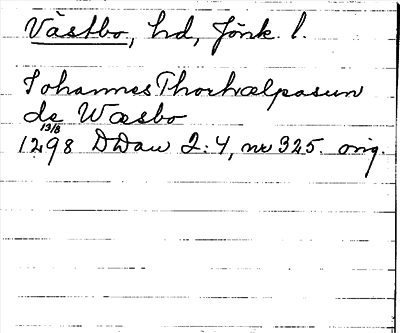 Västbo, hd, Jönk. l.
Johannes Thorhælpasun
de Wæsbo
19/8
1298 DDan 2:4, nr 325. orig.